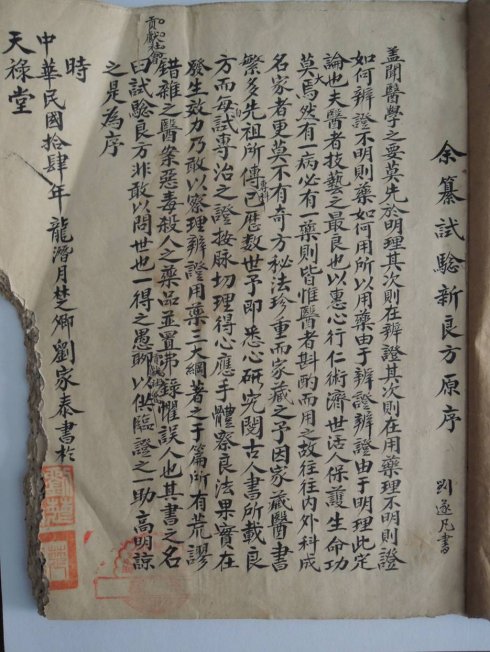 余纂試驗新良方原序 劉遂凡書
蓋聞醫學之要莫先於明理其次則在辨證其次則在用藥理不明則證
如何辨證不明則藥如何用所以用藥由于辨證辨證由于明理此定
論也夫醫者技藝之最良也以惠心行仁術濟世活人保護生命功
莫大焉然有一病必有一藥則皆惟醫者斟酌而用之故往往內外科成
名家者更莫不有奇方秘法珍重而家藏之予因家藏醫書
繁多先祖所傳已歷數世予即悉心研究閱古人書所載良
方而每試專治之證按脉切理得心應手體察良法果實在
發生效力乃敢以察理辨證用藥三大綱著之于篇所有荒謬
錯雜之醫案惡毒殺人之藥品並置弗錄懼誤人也其書之名
曰試驗良方非敢以問世也一得之愚聊以供臨證之一助高明諒
之是為序
時
中華民國拾肆年龍潛月楚卿劉家泰書於
天祿堂